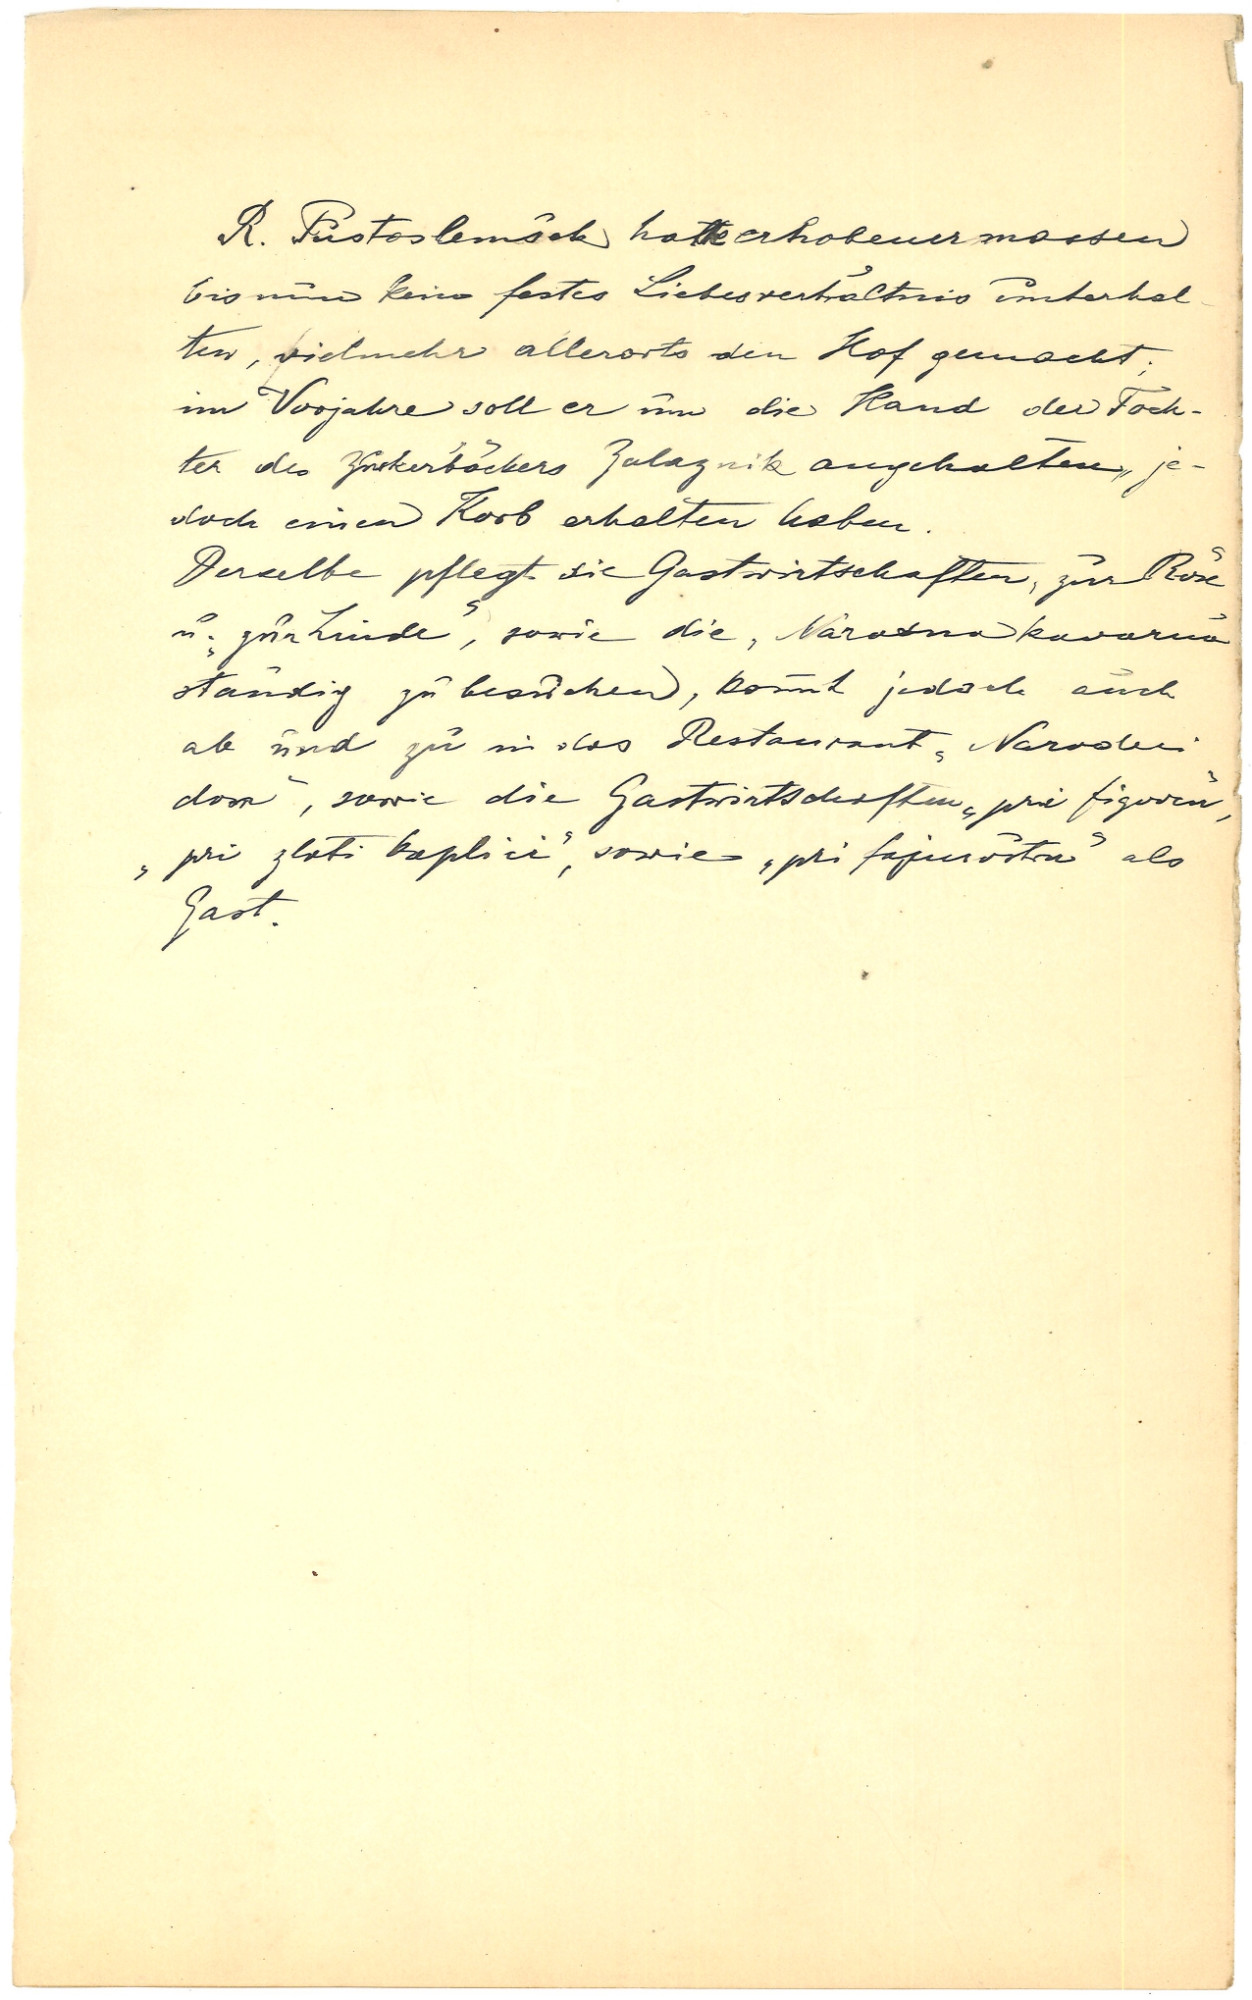 R. Pustoslemšek hatte erhobenermassen
bis nun kein festes Liebesverhältnis unterhal-
ten, vielmehr allerorts den Hof gemacht;
im Vorjahre soll er um die Hand der Toch-
ter des Zuckerbäckers Zalaznik angehalten, je-
doch einen Korb erhalten haben.
Derselbe pflegt die Gastwirtschaften „zur Rose“
u. „zur Linde“, sowie die „Narodna kavarna“
ständig zu besuchen, kommt jedoch auch
ab und zu in das Restaurant „Narodni
dom“, sowie die Gastwirtschaften „pri figovcu“,
„pri zlati kaplici“, sowie „pri fajmoštru“ als
Gast.